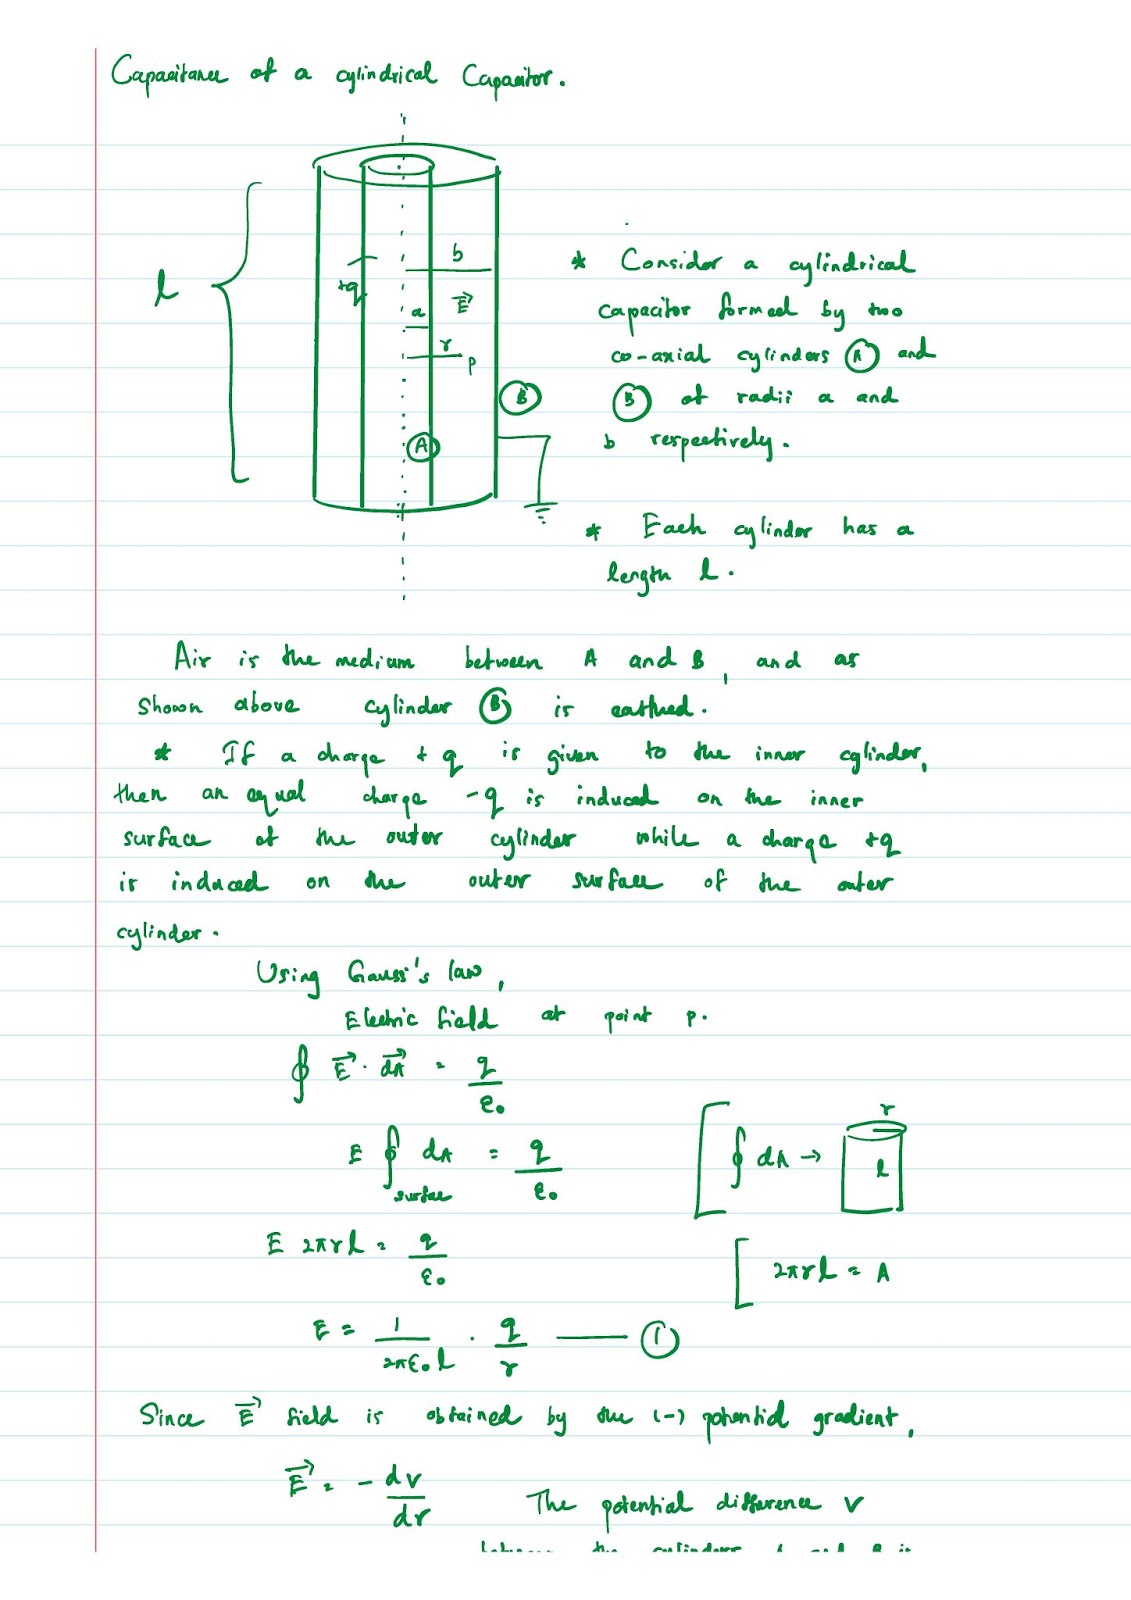 Capacitance of a cylindrical Capacitor.
l
+q
b
a
E⃗
r
p
B
A
* Consider a cylindrical
capacitor formed by two
co-axial cylinders (A) and
(B) of radii a and
b respectively.
* Each cylinder has a
length l.
Air is the medium between A and B, and as
shown above cylinder (B) is earthed.
* If a charge +q is given to the inner cylinder,
then an equal charge -q is induced on the inner
surface of the outer cylinder while a charge +q
is induced on the outer surface of the outer
cylinder.
Using Gauss's law,
Electric field at point p.
∮ E⃗ · dA⃗ = q/ε₀
E ∮ dA = q/ε₀
surface
[ ∮ dA →
r
l
E 2πrl = q/ε₀
[ 2πrl = A
E = 1/2πε₀l · q/r —— (1)
Since E⃗ field is obtained by the (-) potential gradient,
E⃗ = - dv/dr
The potential difference V
between the cylinders